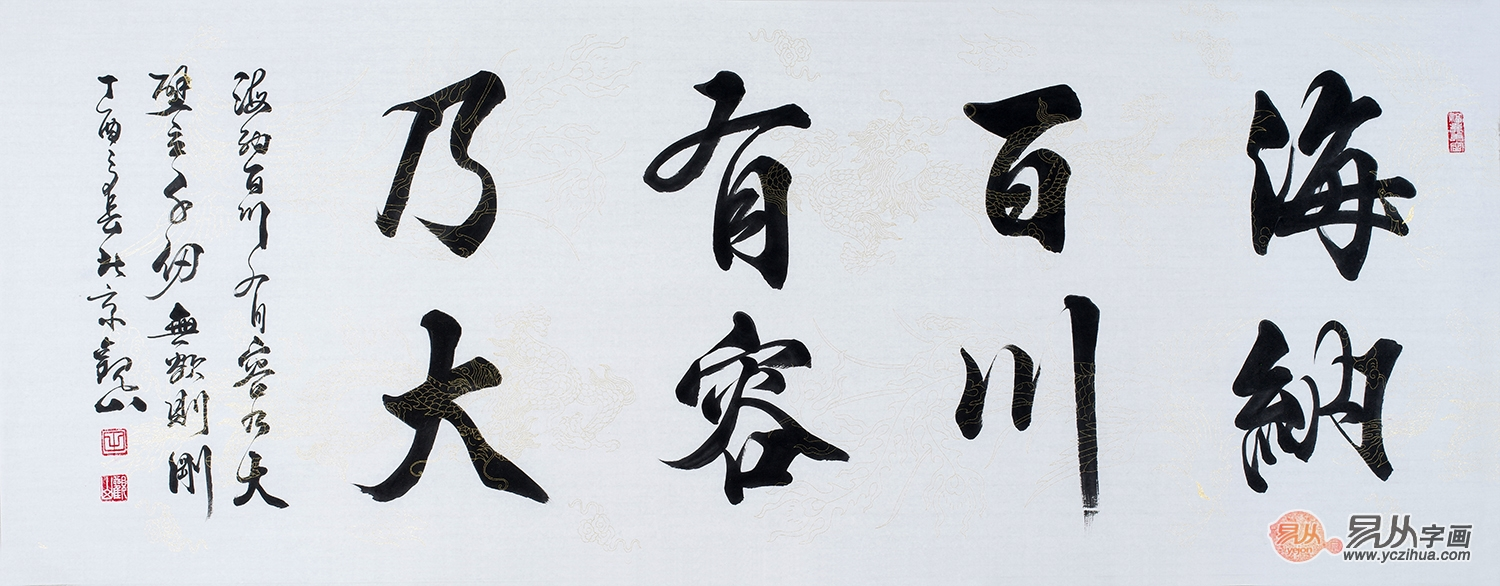 海納
百川
有容
乃大
海納百川有容乃大
壁立千仞無欲則剛
丁酉之春北京觀山
易从字画
www.yczihua.com